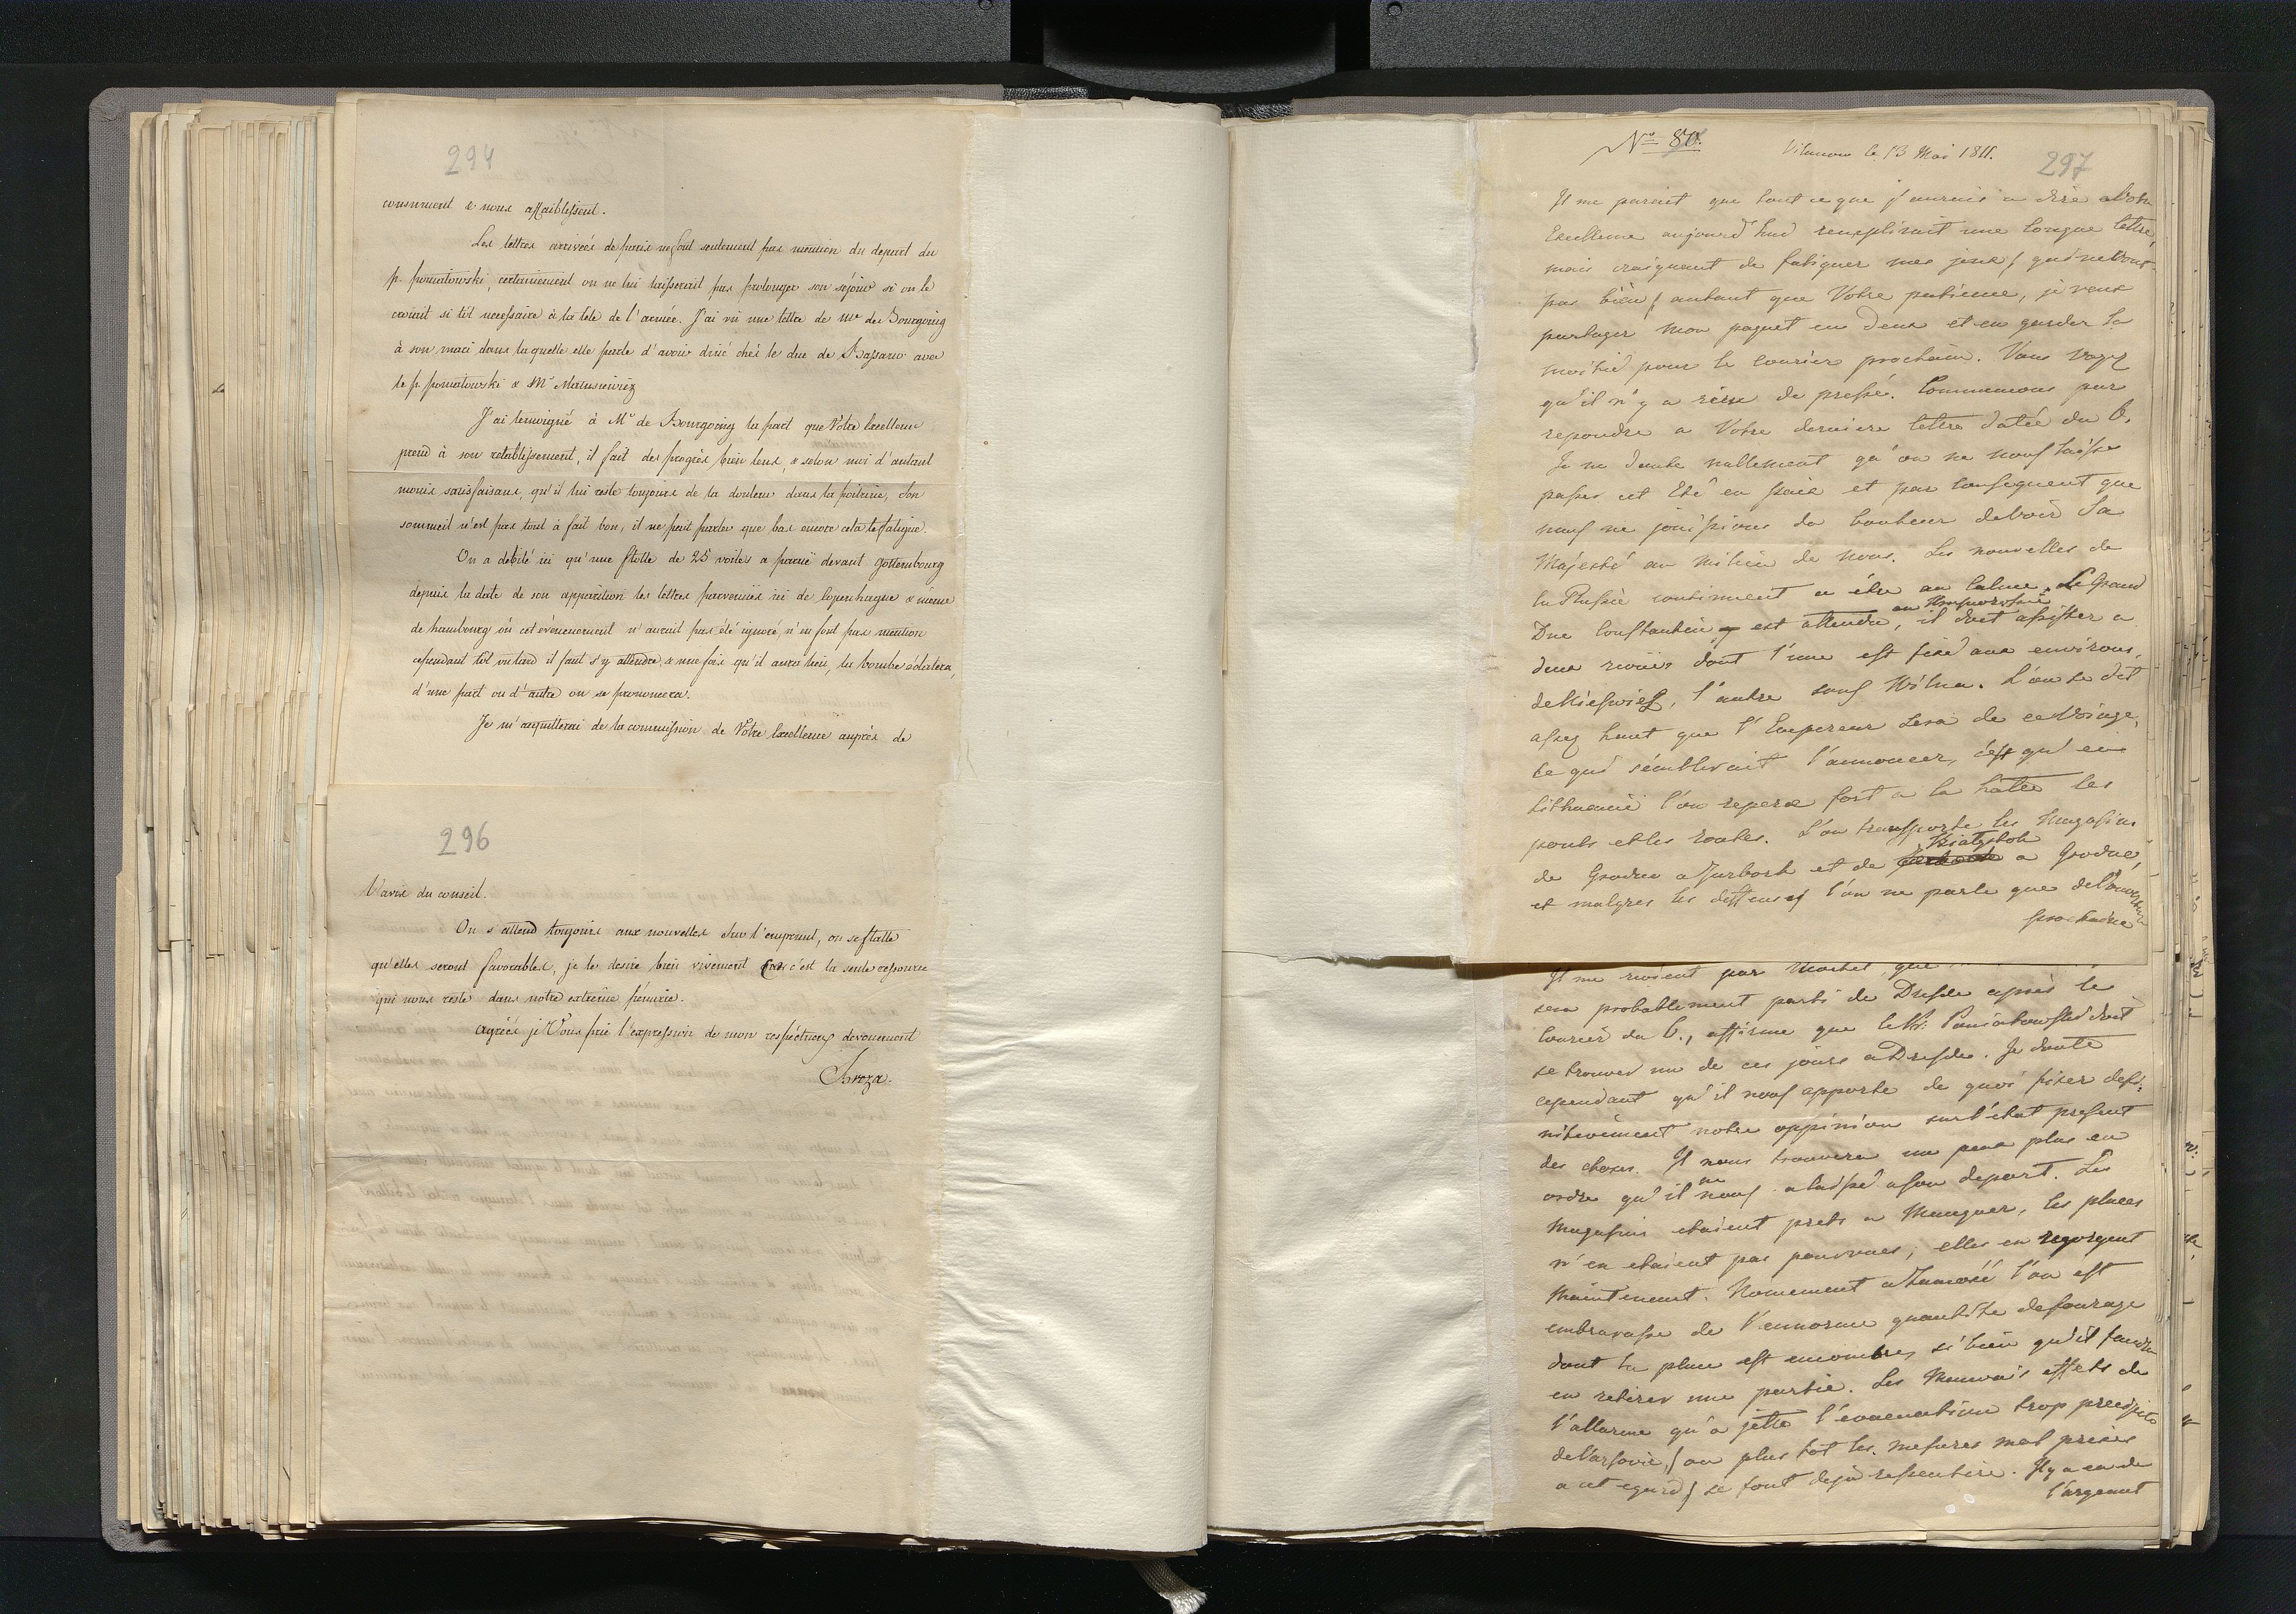 294
consument & nous affaiblissent.
Les lettres arrivées de paris ne font seulement pas mention du depart du
p. poniatowski, certainement on ne lui laisserait pas prolonger son séjour si on le
croiait si tôt necessaire à la tête de l'armée. J'ai vu une lettre de Me de Bourgoing
à son mari dans laquelle elle parle d'avoir diné chés le duc de Bassano avec
le p. poniatowski & Mr Matusiewicz
J'ai temoigné à Mr de Bourgoing la part que Votre Excellence
prend à son retablissement, il fait des progrès bien lens, & selon moi d'autant
moins satisfaisans, qu'il lui reste toujours de la douleur dans la poitrine, Son
sommeil n'est pas tout à fait bon, il ne peut parler que bas encore cela le fatigue.
On a debité ici qu'une flotte de 25 voiles a paruë devant gottembourg
depuis la date de son apparition les lettres parvenuës ici de Copenhague & même
de hambourg où cet évenement n'aurait pas été ignoré, n'en font pas mention
cependant tôt ou tard il faut s'y attendre & une fois qu'il aura lieu, la bombe éclatera,
d'une part ou d'autre on se prononcera.
Je m'acquitterai de la commission de Votre Excellence auprès de
296
l'avis du conseil.
On s'attend toujours aux nouvelles sur l'emprunt, on se flatte
qu'elles seront favorables, je le desire bien vivement car c'est la seule ressource
qui nous reste dans notre extrême pénurie.
agréés je Vous prie l'expression de mon respectueux devouement
Breza.
No 80.
Vilanow le 13 Mai 1811.
297
Il me parait que tout ce que j'aurais a dire a Votre
Excellence aujourd'hui remplirait une longue lettre,
mais craignant de fatiguer mes jeux (qui ne vont
pas bien) autant que Votre patience, je veux
partager mon paquet en deux et en garder la
moitié pour le courier prochain. Vous voyez
qu'il n'y a rien de pressé. Commencons par
repondre a Votre derniere lettre datée du 6.
Je ne doute nullement qu'on ne nous laisse
passer cet Eté en paix et par consequent que
nous ne jouissions du bonheur de voir Sa
Majesté au milieu de nous. Les nouvelles de
la Russie continuent a être au calme. Le Grand
Duc Constantin est attendu, il doit assister a
deux revües dont l'une est fixé aux environs
de Nieswiez, l'autre sous Wilna. L'on se dit
assez haut que l'Empereur sera de ce Voiage,
ce qui semblerait l'annoncer, c'est qu'en
Lithuanie l'on repare fort a la hâte les
ponts et les routes. L'on transporte les Magasins
de Grodno a Jurbork et de Bialystok a Grodno,
et malgres les deffenses l'on ne parle que de l'ouverture
prochaine
Il me revient par Mostet, que
sera probablement parti de Dresde après le
courier du 6., affirme que le Pr: Poniatowski doit
se trouver un de ces jours a Dresde. Je doute
cependant qu'il nous apporte de quoi fixer defi-
nitivement notre oppinion sur l'etat present
des choses. Il nous trouvera un peux plus en
ordre qu'il ne nous a laissé a son depart. Les
Magasins etaient prets a Manquer, les places
n'en etaient pas pourvues; elles en regorgent
Maintenant. Nomement a Zamosc l'on est
embarasse de l'ennorme quantite de fourage
dont la place est encombre, si bien qu'il faudra
en retirer une partie. Les Mauvais effets de
l'allarme qu'a jetté l'evacuation trop precipite
de Varsovie, (ou plus tot les mesures mal prises
a cet egard) se font deja ressentire. Il y a eu de
l'argeant